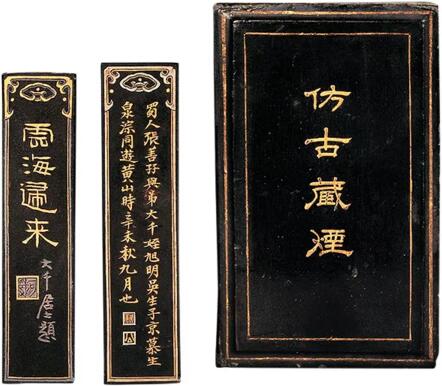 雲海歸来
大千居士題
蜀人張善孖與弟大千姪旭明吳生子京慕生
泉淙同遊黃山時辛未秋九月也
仿古藏煙